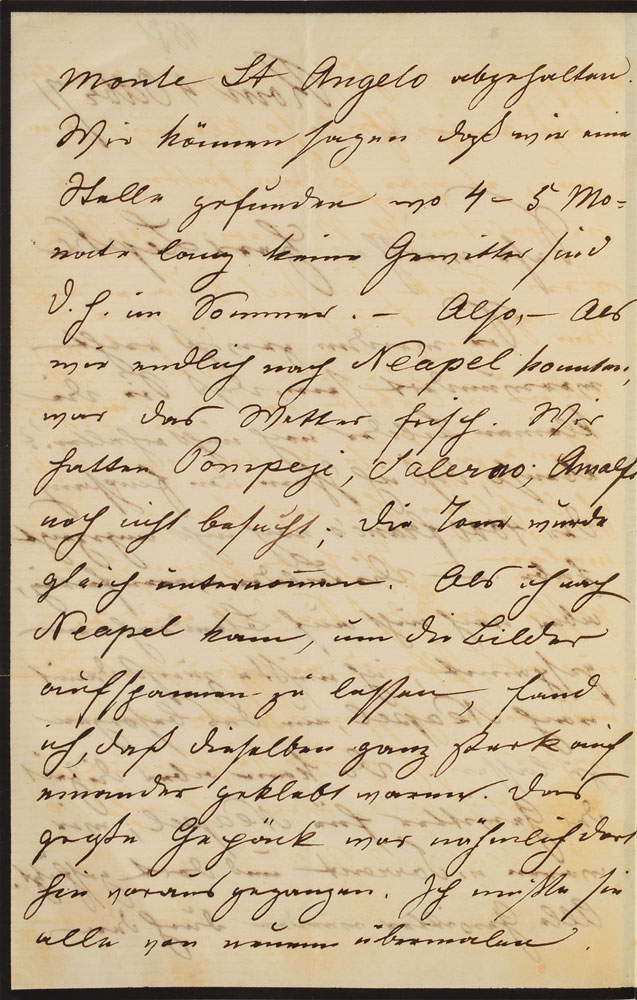 Monte St Angelo abgehalten.
Wir können sagen daß wir eine
Stelle gefunden wo 4 – 5 Mo-
nate lang keine Gewitter sind
d. h. im Sommer. – Also, – Als
wir endlich nach Neapel konnten,
war das Wetter frisch. Wir
hatten Pompeji, Salerno, Amalfi
noch nicht besucht; die Tour wurde
gleich unternommen. Als ich nach
Neapel kam, um die Bilder
aufspannen zu lassen, fand
ich, daß dieselben ganz stark auf
einander geklebt waren. Das
große Gepäck war nähmlich dort
hin voraus gegangen. Ich mußte sie
alle von neuem übermalen.